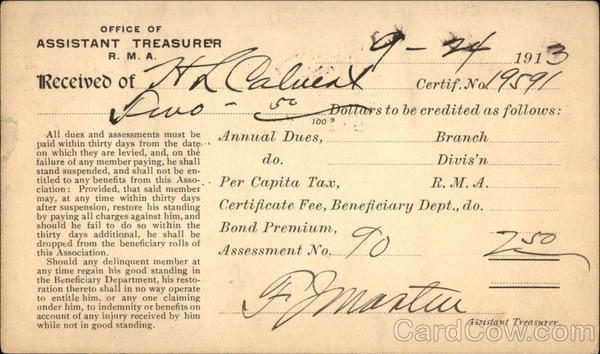 OFFICE OF
ASSISTANT TREASURER
R. M. A.
9 - 24 1913
Received of H L Calvert Certif. No. 19591
Two - 50/100 Dollars to be credited as follows:
All dues and assessments must be
paid within thirty days from the date
on which they are levied, and, on
the failure of any member paying, he shall
stand suspended, and shall not be en-
titled to any benefits from this Asso-
ciation: Provided, that said member
may, at any time within thirty days
after suspension, restore his standing
by paying all charges against him, and
should he fail to do so within the
thirty days additional, he shall be
dropped from the beneficiary rolls of
this Association.
Should any delinquent member at
any time regain his good standing in
the Beneficiary Department, his res-
toration thereto shall in no way operate
to entitle him, or any one claiming
under him, to indemnity or benefits on
account of any injury received by him
while not in good standing.
Annual Dues, Branch
do. Divis'n
Per Capita Tax, R. M. A.
Certificate Fee, Beneficiary Dept., do.
Bond Premium,
Assessment No. 90 2 50
F J Martin
Assistant Treasurer.
CardCow.com